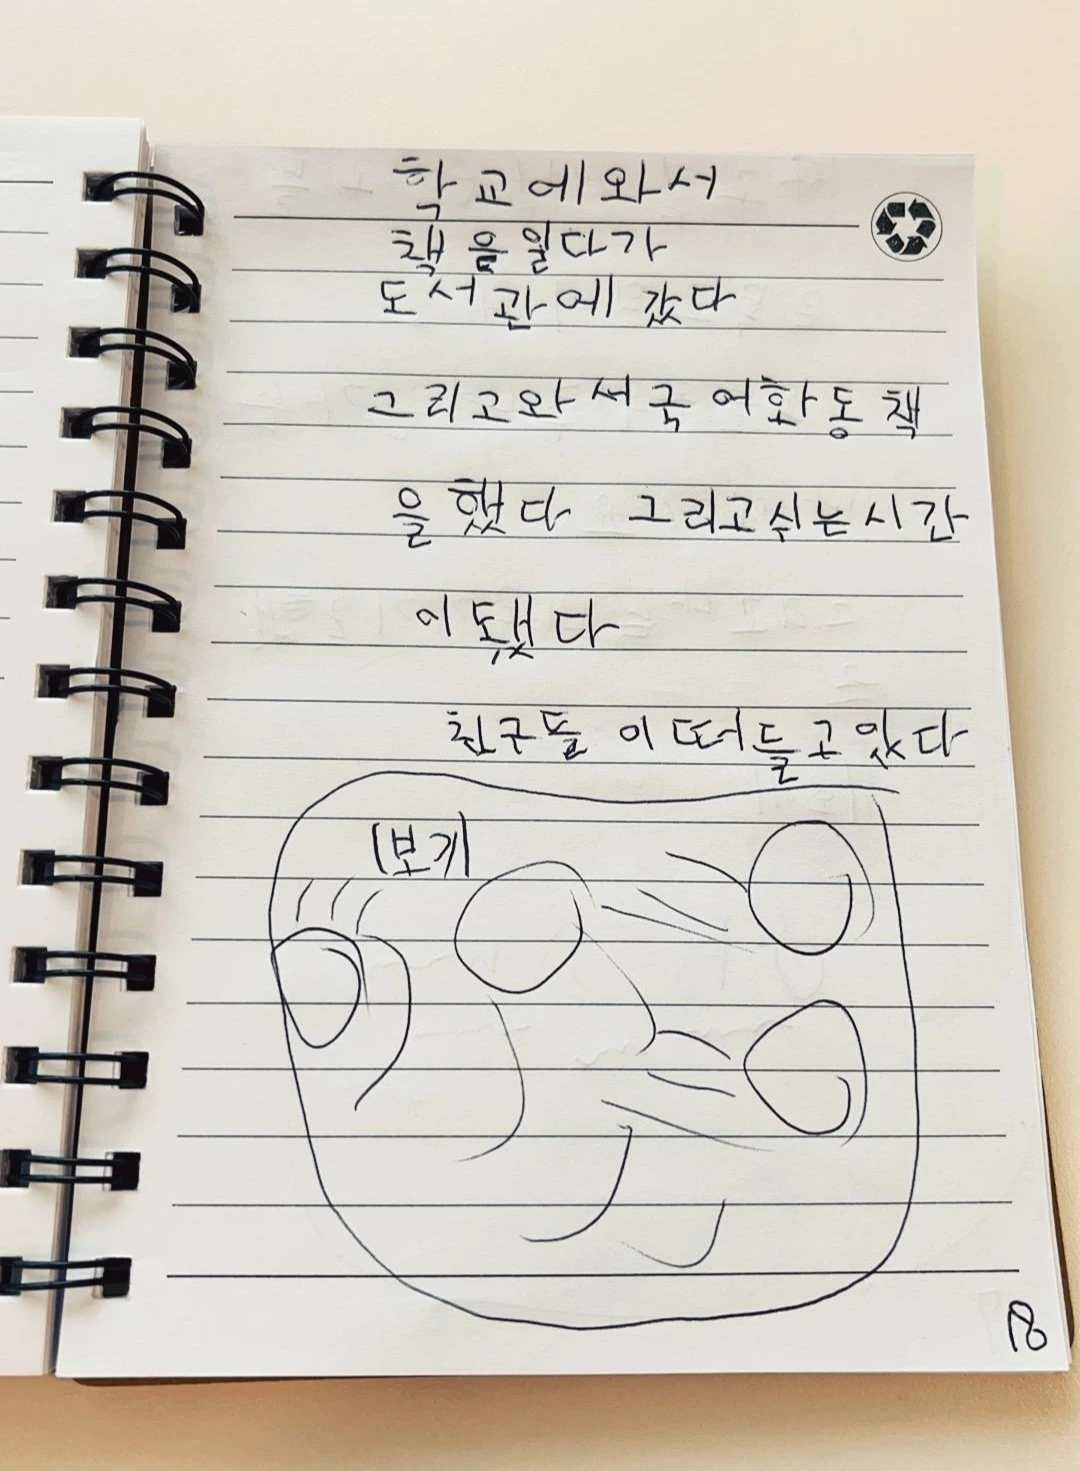 학교에와서
책을일다가
도서관에 갔다
그리고와서국어화동책
을했다 그리고쉬는시간
이됐다
친구들이떠들고있다
(보기)
18